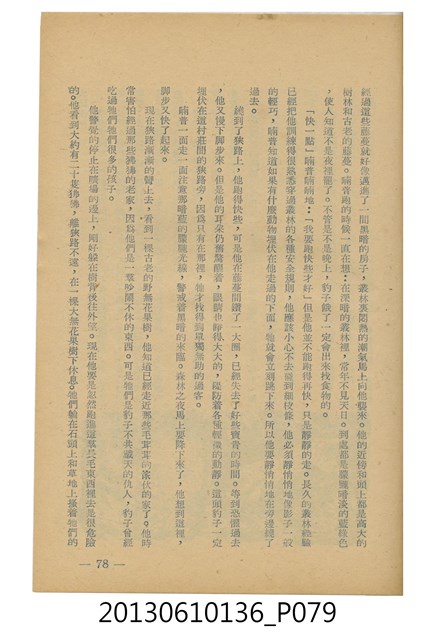 經過這些藤蔓就好像邁進了一間黑暗的房子，叢林裏悶熱的潮氣馬上向他襲來。他的近傍和頭上都是高大的
樹林和古老的藤蔓。喃普跑的時候一直在想：在深暗的叢林裡，常年不見天日。到處都是朦朧暗淡的藍綠色
，使人知道不是夜裡罷了。不管是不是晚上，豹子餓了一定會出來找食物的。
「快一點」喃普喃喃地：「我要跑快些才好」但是他並不能跑得再快，只是靜靜的走。長久的叢林經驗
已經把他訓練得很熟悉穿過叢林的各種安全規則，他應該小心不去碰到細枝條，他必須靜悄悄地像影子一般
的輕巧，喃普知道如果有什麼動物埋伏在他走過的下面，牠就會立刻跳下來。所以他要靜悄悄地在旁邊繞了
過去。
繞到了狹路上，他跑得快些，可是他在藤蔓間鑽了一大圈，已經失去了好些寶貴的時間。等到恐懼過去
，他又慢下脚步來。但是他的耳朵仍舊聳豎着，眼睛也睜得大大的，提防着各種輕微的動靜。這頭豹子一定
埋伏在這村莊間的狹路旁，因爲只有在那裡，牠才找得到單獨無助的過客。
喃普一面走一面注意那暗藍的朦朧光線，警戒着黑暗的來臨。森林之夜馬上要降下來了，他想到這裡，
脚步又快了起來。
現在狹路漸漸的彎上去，看到一棵古老的野無花果樹，他知道已經走近那些毛茸茸的狒狒的家了。他時
常害怕經過那些狒狒的老家，因爲他們是一羣吵鬧不休的東西。可是牠們是豹子不共戴天的仇人，豹子曾經
吃過牠們牠們很多的孩子。
他警覺的停止在曠場的邊上，剛好躲在樹背後往外望。現在他要是忽然跑進這羣長毛東西裡去是很危險
的。他看到大約有二十隻狒狒，離狹路不遠，在一棵大無花果樹下休息。牠們躺在石頭上和草地上搔着牠們的
— 78 —
20130610136_P079